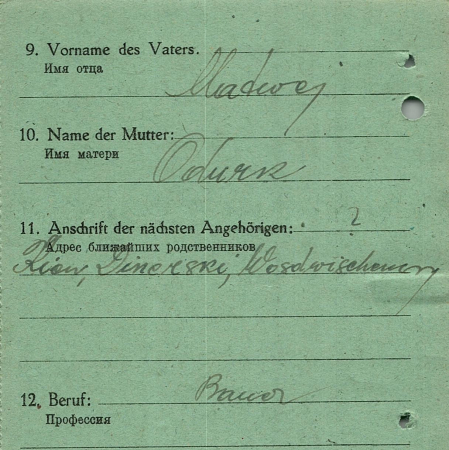 9. Vorname des Vaters.
Имя отца
Madwej
10. Name der Mutter:
Имя матери
Odurk
11. Anschrift der nächsten Angehörigen: 2
Адрес ближайших родственников
Kiew, Dinerski, Wosdwischenny
12. Beruf: Bauer
Профессия